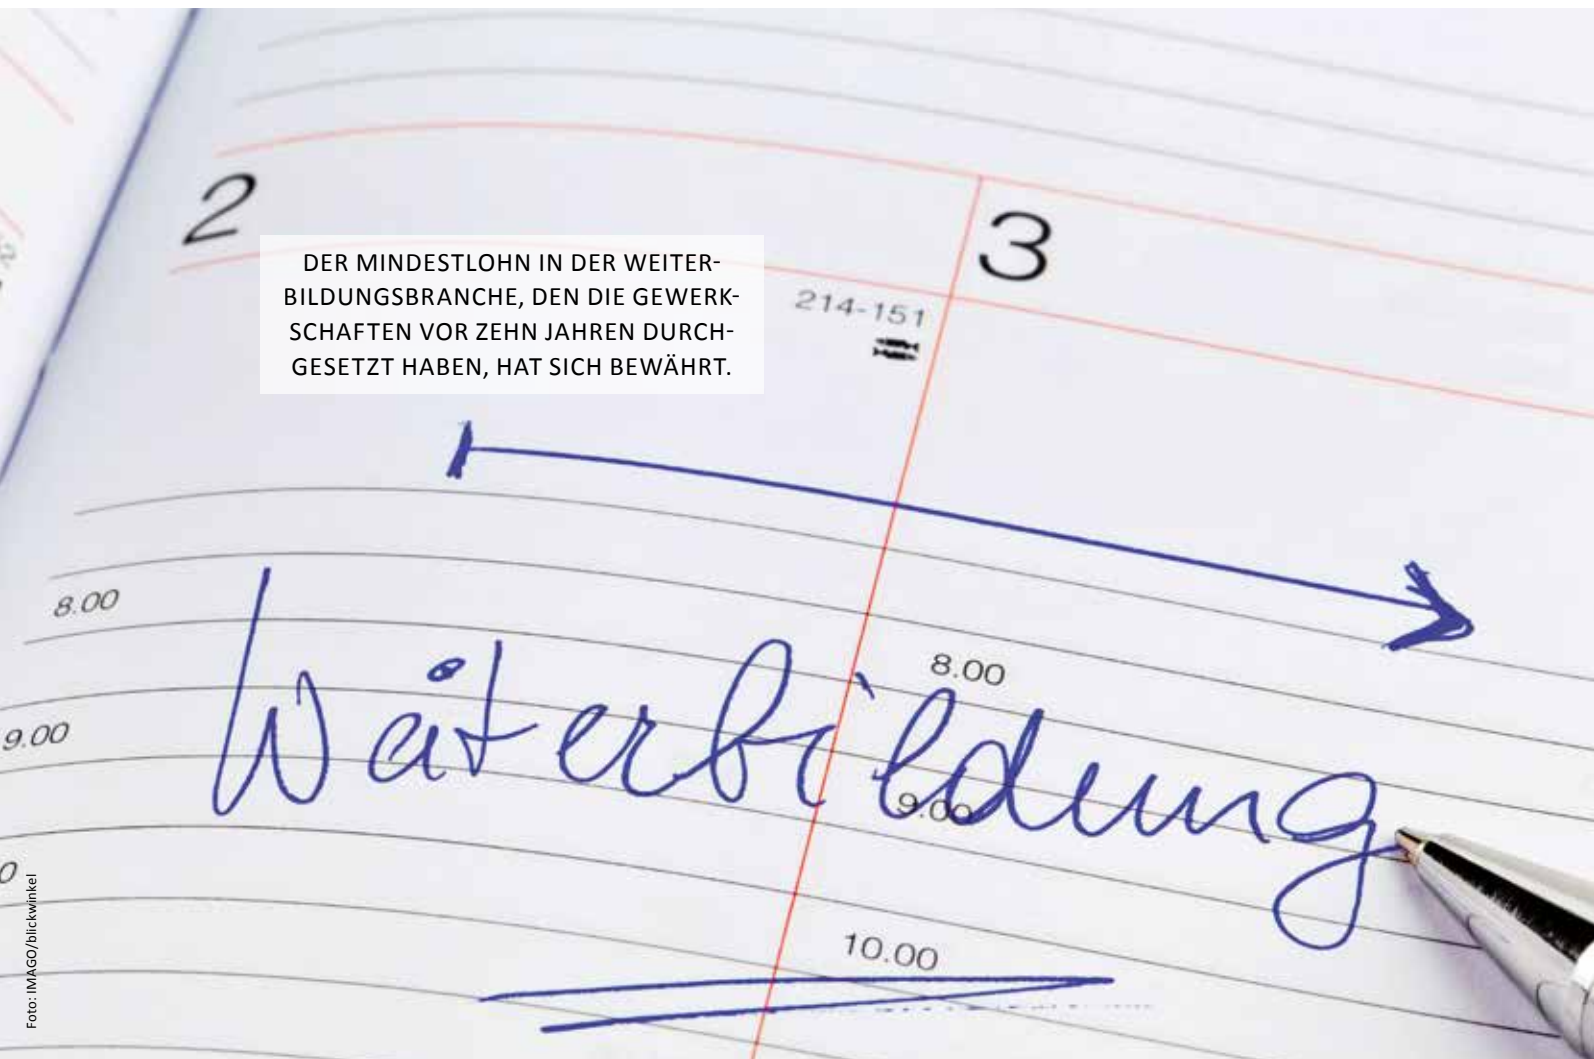 2
3
DER MINDESTLOHN IN DER WEITER-
BILDUNGSBRANCHE, DEN DIE GEWERK-
SCHAFTEN VOR ZEHN JAHREN DURCH-
GESETZT HABEN, HAT SICH BEWÄHRT.
214-151
8.00
8.00
Weiterbildung
9.00
9.00
10.00
Foto: IMAGO/blickwinkel